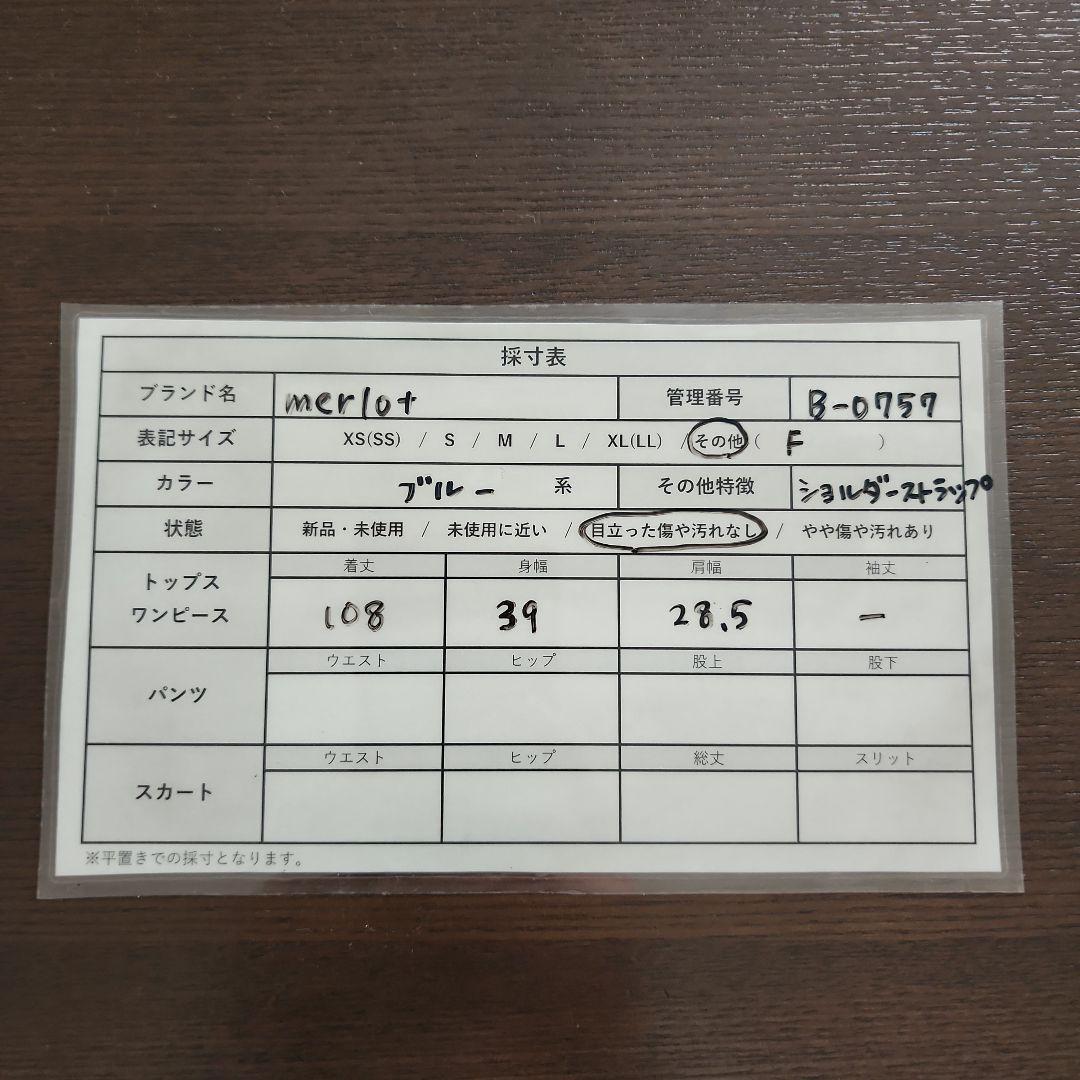 採寸表
ブランド名 merlot 管理番号 B-0757
表記サイズ XS(SS) / S / M / L / XL(LL) / その他 ( F )
カラー ブルー 系 その他特徴 ショルダーストラップ
状態 新品・未使用 / 未使用に近い / 目立った傷や汚れなし / やや傷や汚れあり
トップス ワンピース 着丈 身幅 肩幅 袖丈
108 39 28.5 ー
パンツ ウエスト ヒップ 股上 股下
スカート ウエスト ヒップ 総丈 スリット
※平置きでの採寸となります。